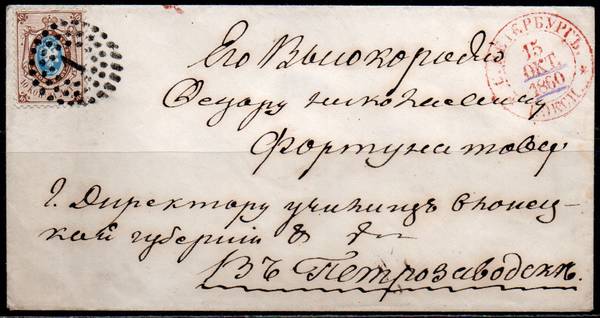 Его Высокородію
Федору Николаевичу
Фортунатову
Г. Директору училищъ Олонец-
кой губерніи
Въ Петрозаводскъ.
С. ПЕТЕРБУРГЪ
13
ОКТ.
1860